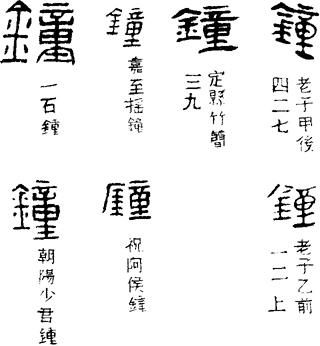 鍾
老子甲後
四二七
鐘
定縣竹簡
三九
鐘
嘉至搖鐘
鐘
一石鍾
鍾
老子乙前
一二上
鐘
祝阿侯鐘
鐘
朝陽少君鍾